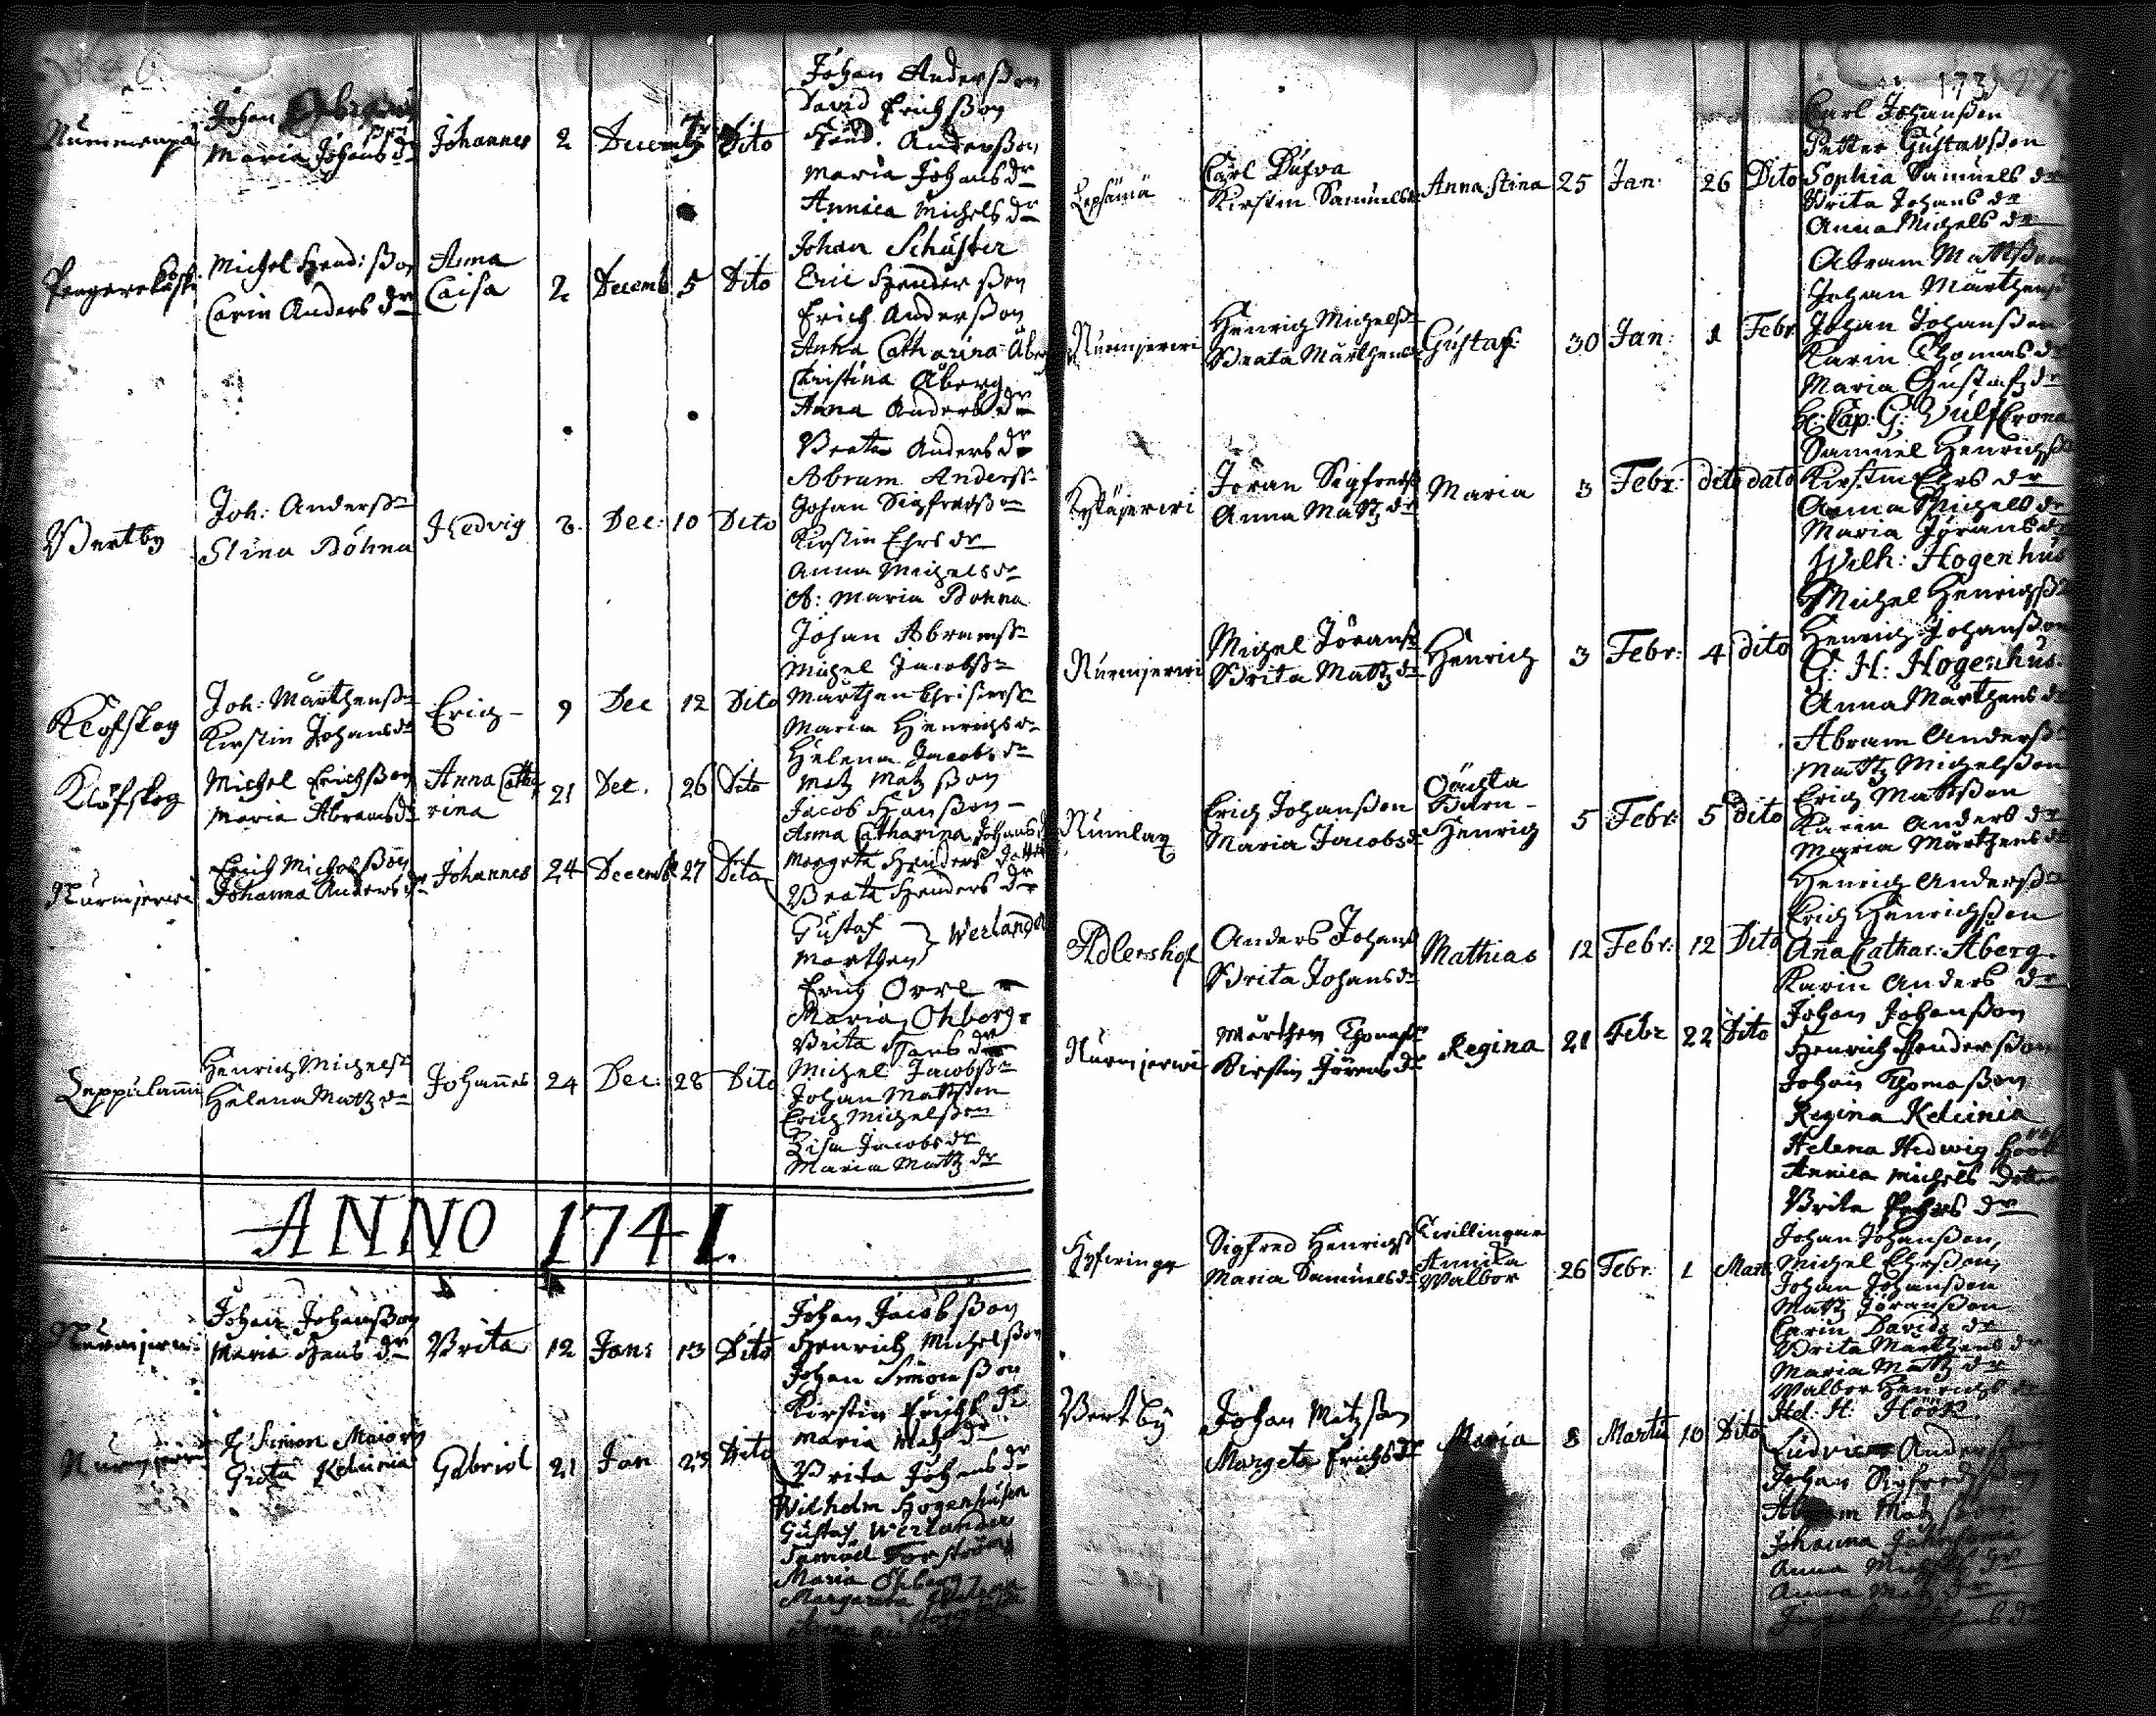 Johan
Maria Johans dr
Johannes 2 Decemb Dito
Johan Andersson
David Erichsson
Hend. Andersson
Maria Johans dr
Annica Michels dr
Michel Hend: sson
Carin Anders dr
Anna
Caisa
2 Decemb 5 Dito
Johan Schuster
Eric Hendersson
Erich Andersson
Anna Catharina Åberg
Christina Åberg
Anna Anders dr
Beata Anders dr
Wertby
Joh: Anderss
Stina Böhna
Hedvig 8. Dec: 10 Dito
Abram Anderss
Johan Sigfredsson
Kirstin Ehrs dr
Anna Michels dr
A: Maria Bohna
Klöfskog
Joh: Mårthenss
Kirstin Johans dr
Erich 9 Dec 12 Dito
Johan Abramss
Michel Jacobss
Mårthen Christerss
Maria Henrichs dr
Helena Jacobs dr
Klöfskog
Michel Erichsson
Maria Abrams dr
Anna Catha
rina
21 Dec. 26 Dito
Matz Matzson
Jacob Hansson
Anna Catharina Johans
Nurmjerwi
Erich Michelsson
Johanna Anders dr
Johannes 24 Decemb 27 Dito
Margeta Henders dotter
Beata Henders dr
Gustaf
Marthen } Werlander
Erich Orre
Maria Ohberg
Brita Hans dr
Leppülamî
Henrich Michelss
Helena Matz dr
Johan̄es 24 Dec: 28 Dito
Michel Jacobss
Johan Mattsson
Erich Michelsson
Lisa Jacobs dr
Maria Mattz dr
ANNO 1741.
Nurmjerwi
Johan Johansson
Maria Hans dr
Brita 12 Jan: 13 Dito
Johan Jacobsson
Henrich Michelsson
Johan Simonsson
Kirstin Erichs dr
Maria Matz dr
Brita Johans dr
Simon
Greta Kelunia
Gabriel 21 Jan 23 Dito
Wilhelm Hogenhusen
Gustaf Werlander
Samuel Forström
Maria Ohberg
Margareta
173
Lepsämä
Carl Dufva
Kirstin Samuels
Anna Stina 25 Jan: 26 Dito
Carl Johansson
Petter Gustavsson
Sophia Samuels dr
Brita Johans dr
Anna Michels dr
Nurmjerwi
Henrich Michelss
Beata Mårthens
Gustaf: 30 Jan: 1 Febr
Abram Mattsson
Johan Mårthenss
Johan Johansson
Karin Thomas dr
Maria Gustafz dr
Kytäjerwi
Jöran Sigfreds
Anna Mattz dr
Maria 3 Febr: dito dato
H: Cap: G: Wulfcrona
Samuel Henrichss
Kirstin Ehrs dr
Anna Michels dr
Maria Jörans dr
Nurmjerwi
Michel Jöranss
Brita Mattz dr
Henrich 3 Febr: 4 dito
Wilh: Hogenhus
Michel Henrichss
Henrich Johansson
G: H: Hogenhus.
Anna Mårthens dr
Numlax
Erich Johansson
Maria Jacobs dr
Oächta
Barn -
Henrich
5 Febr: 5 dito
Abram Anderss
Mattz Michelsson
Erich Mattsson
Karin Anders dr
Maria Mårthens dr
Adlershof
Anders Johans
Brita Johans dr
Mathias 12 Febr: 12 Dito
Henrich Anderss
Erich Henrichsson
An̄a Cathar: Åberg.
Karin Anders dr
Nurmjerwi
Mårthen Thomass
Kirstin Jörans dr
Regina 21 Febr 22 Dito
Johan Johansson
Henrich Hendersson
Johan Thomasson
Regina Kelunia
Helena Hedwig Höök
Annica Michels dotter
Brita Pehrs dr
Hyfwinge
Sigfred Henrichss
Maria Samuels dr
Twillingar
Annika
Walbor
26 Febr 1 Mart
Johan Johansson,
Michel Ehrsson,
Johan Johansson
Mattz Jöransson
Carin Davids dr
Brita Marthens dr
Maria Mattz dr
Walbor Henrichs dr
Wertby
Johan Matzson
Margeta Erichs dr
Maria 8 Martii 10 Dito
Hel: H: Höök.
Ludvic Andersson
Johan Sigfredsson
Abram Matzson
Johanna
Anna Michels dr
Anna Matz dr